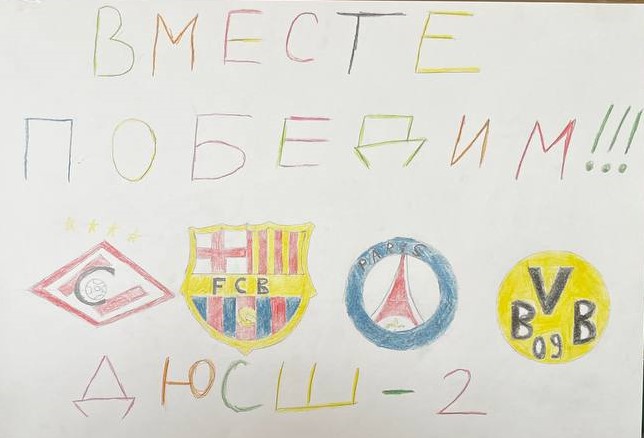 ВМЕСТЕ
ПОБЕДИМ!!!
С
FCB
PARIS
BVB
09
ДЮСШ-2